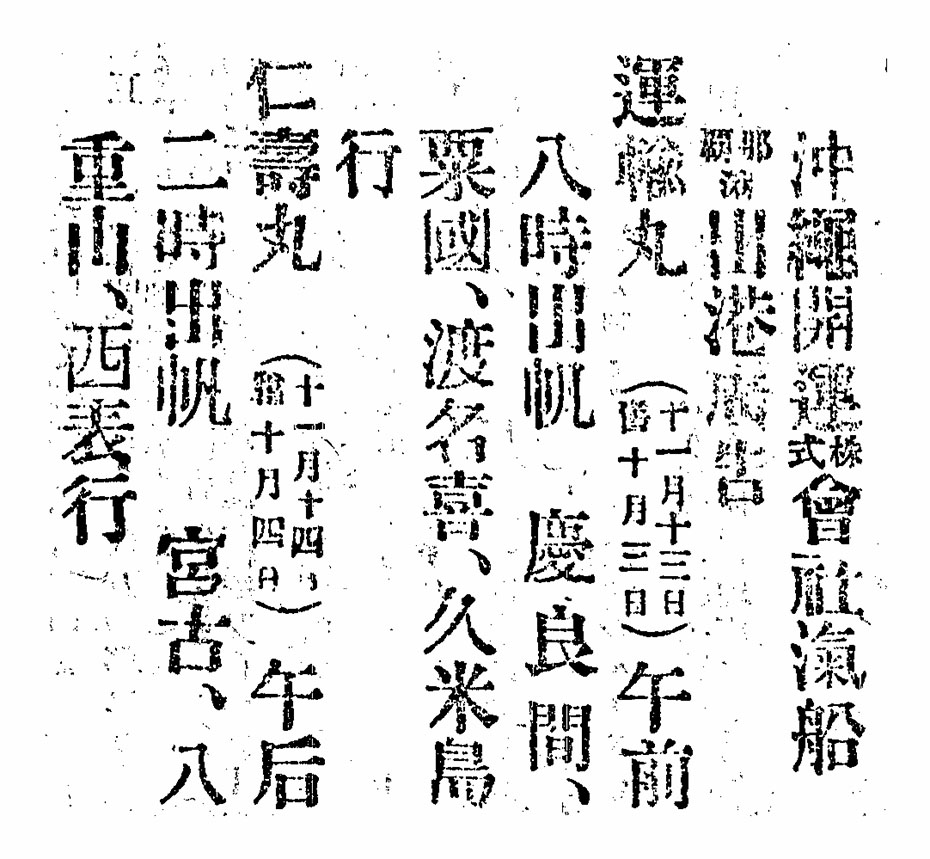 沖繩開運株式會社滊船
那覇出港廣告
運輸丸(十一月十三日舊十月三日)午前
八時出帆 慶良間、
粟國、渡名喜、久米島
行
仁壽丸(十一月十四日舊十月四日)午后
二時出帆 宮古、八
重山、西表行